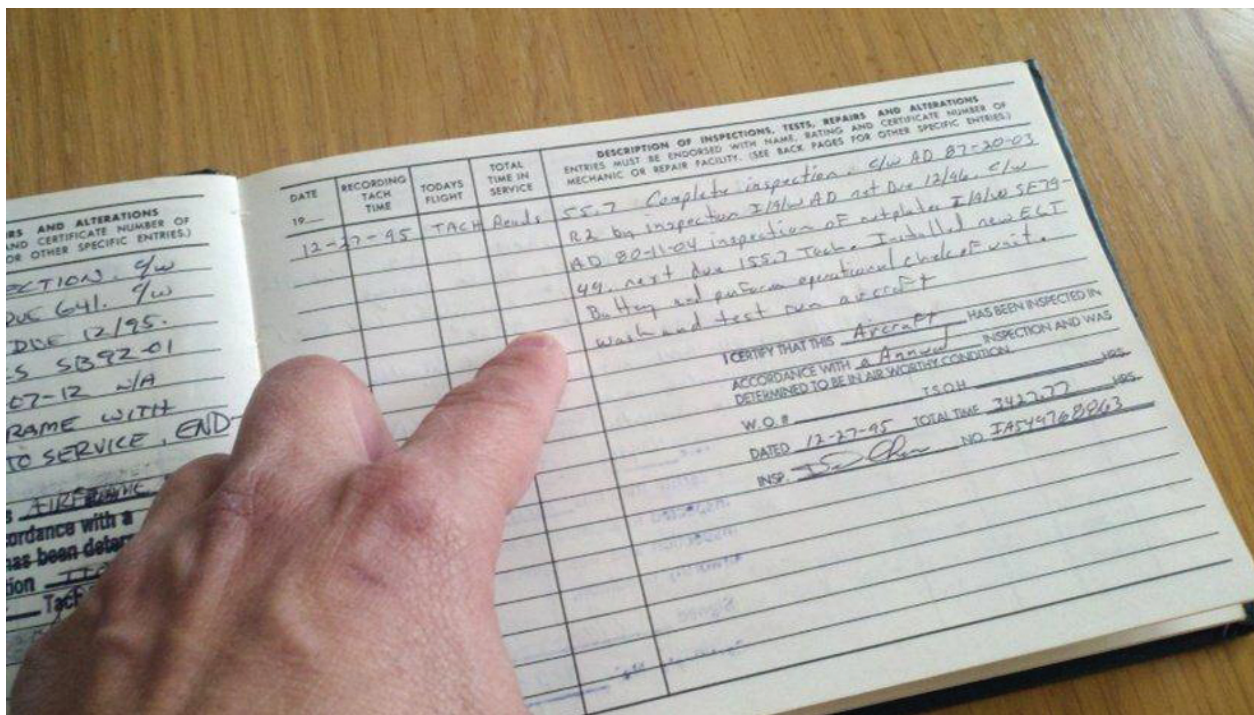 RS AND ALTERATIONS
AND CERTIFICATE NUMBER OF
OR OTHER SPECIFIC ENTRIES.)
ECTION. C/W
DUE 641. C/W
DUE 12/95.
S SB92-01
07-12 N/A
RAME WITH
TO SERVICE, END
AIRFRAME
ordance with a
has been deter
tion
Tach
DATE
19
RECORDING
TACH
TIME
TODAYS
FLIGHT
TOTAL
TIME IN
SERVICE
DESCRIPTION OF INSPECTIONS, TESTS, REPAIRS AND ALTERATIONS
ENTRIES MUST BE ENDORSED WITH NAME, RATING AND CERTIFICATE NUMBER OF
MECHANIC OR REPAIR FACILITY. (SEE BACK PAGES FOR OTHER SPECIFIC ENTRIES.)
12-27-95 TACH Reads 55.7 Complete inspection. C/W AD 87-20-03
R2 by inspection I/A/W AD nxt Due 12/96. C/W
AD 80-11-04 inspection of nutplates I/A/W SE79-
49. next due 155.7 Tach. Installed new ELT
Battery and perform operational check of unit.
wash and test run aircraft
I CERTIFY THAT THIS Aircraft HAS BEEN INSPECTED IN
ACCORDANCE WITH a Annual INSPECTION AND WAS
DETERMINED TO BE IN AIR WORTHY CONDITION.
W.O. # T.S.O.H. HRS.
DATED 12-27-95 TOTAL TIME 3427.77 HRS.
INSP. NO. IA549768863